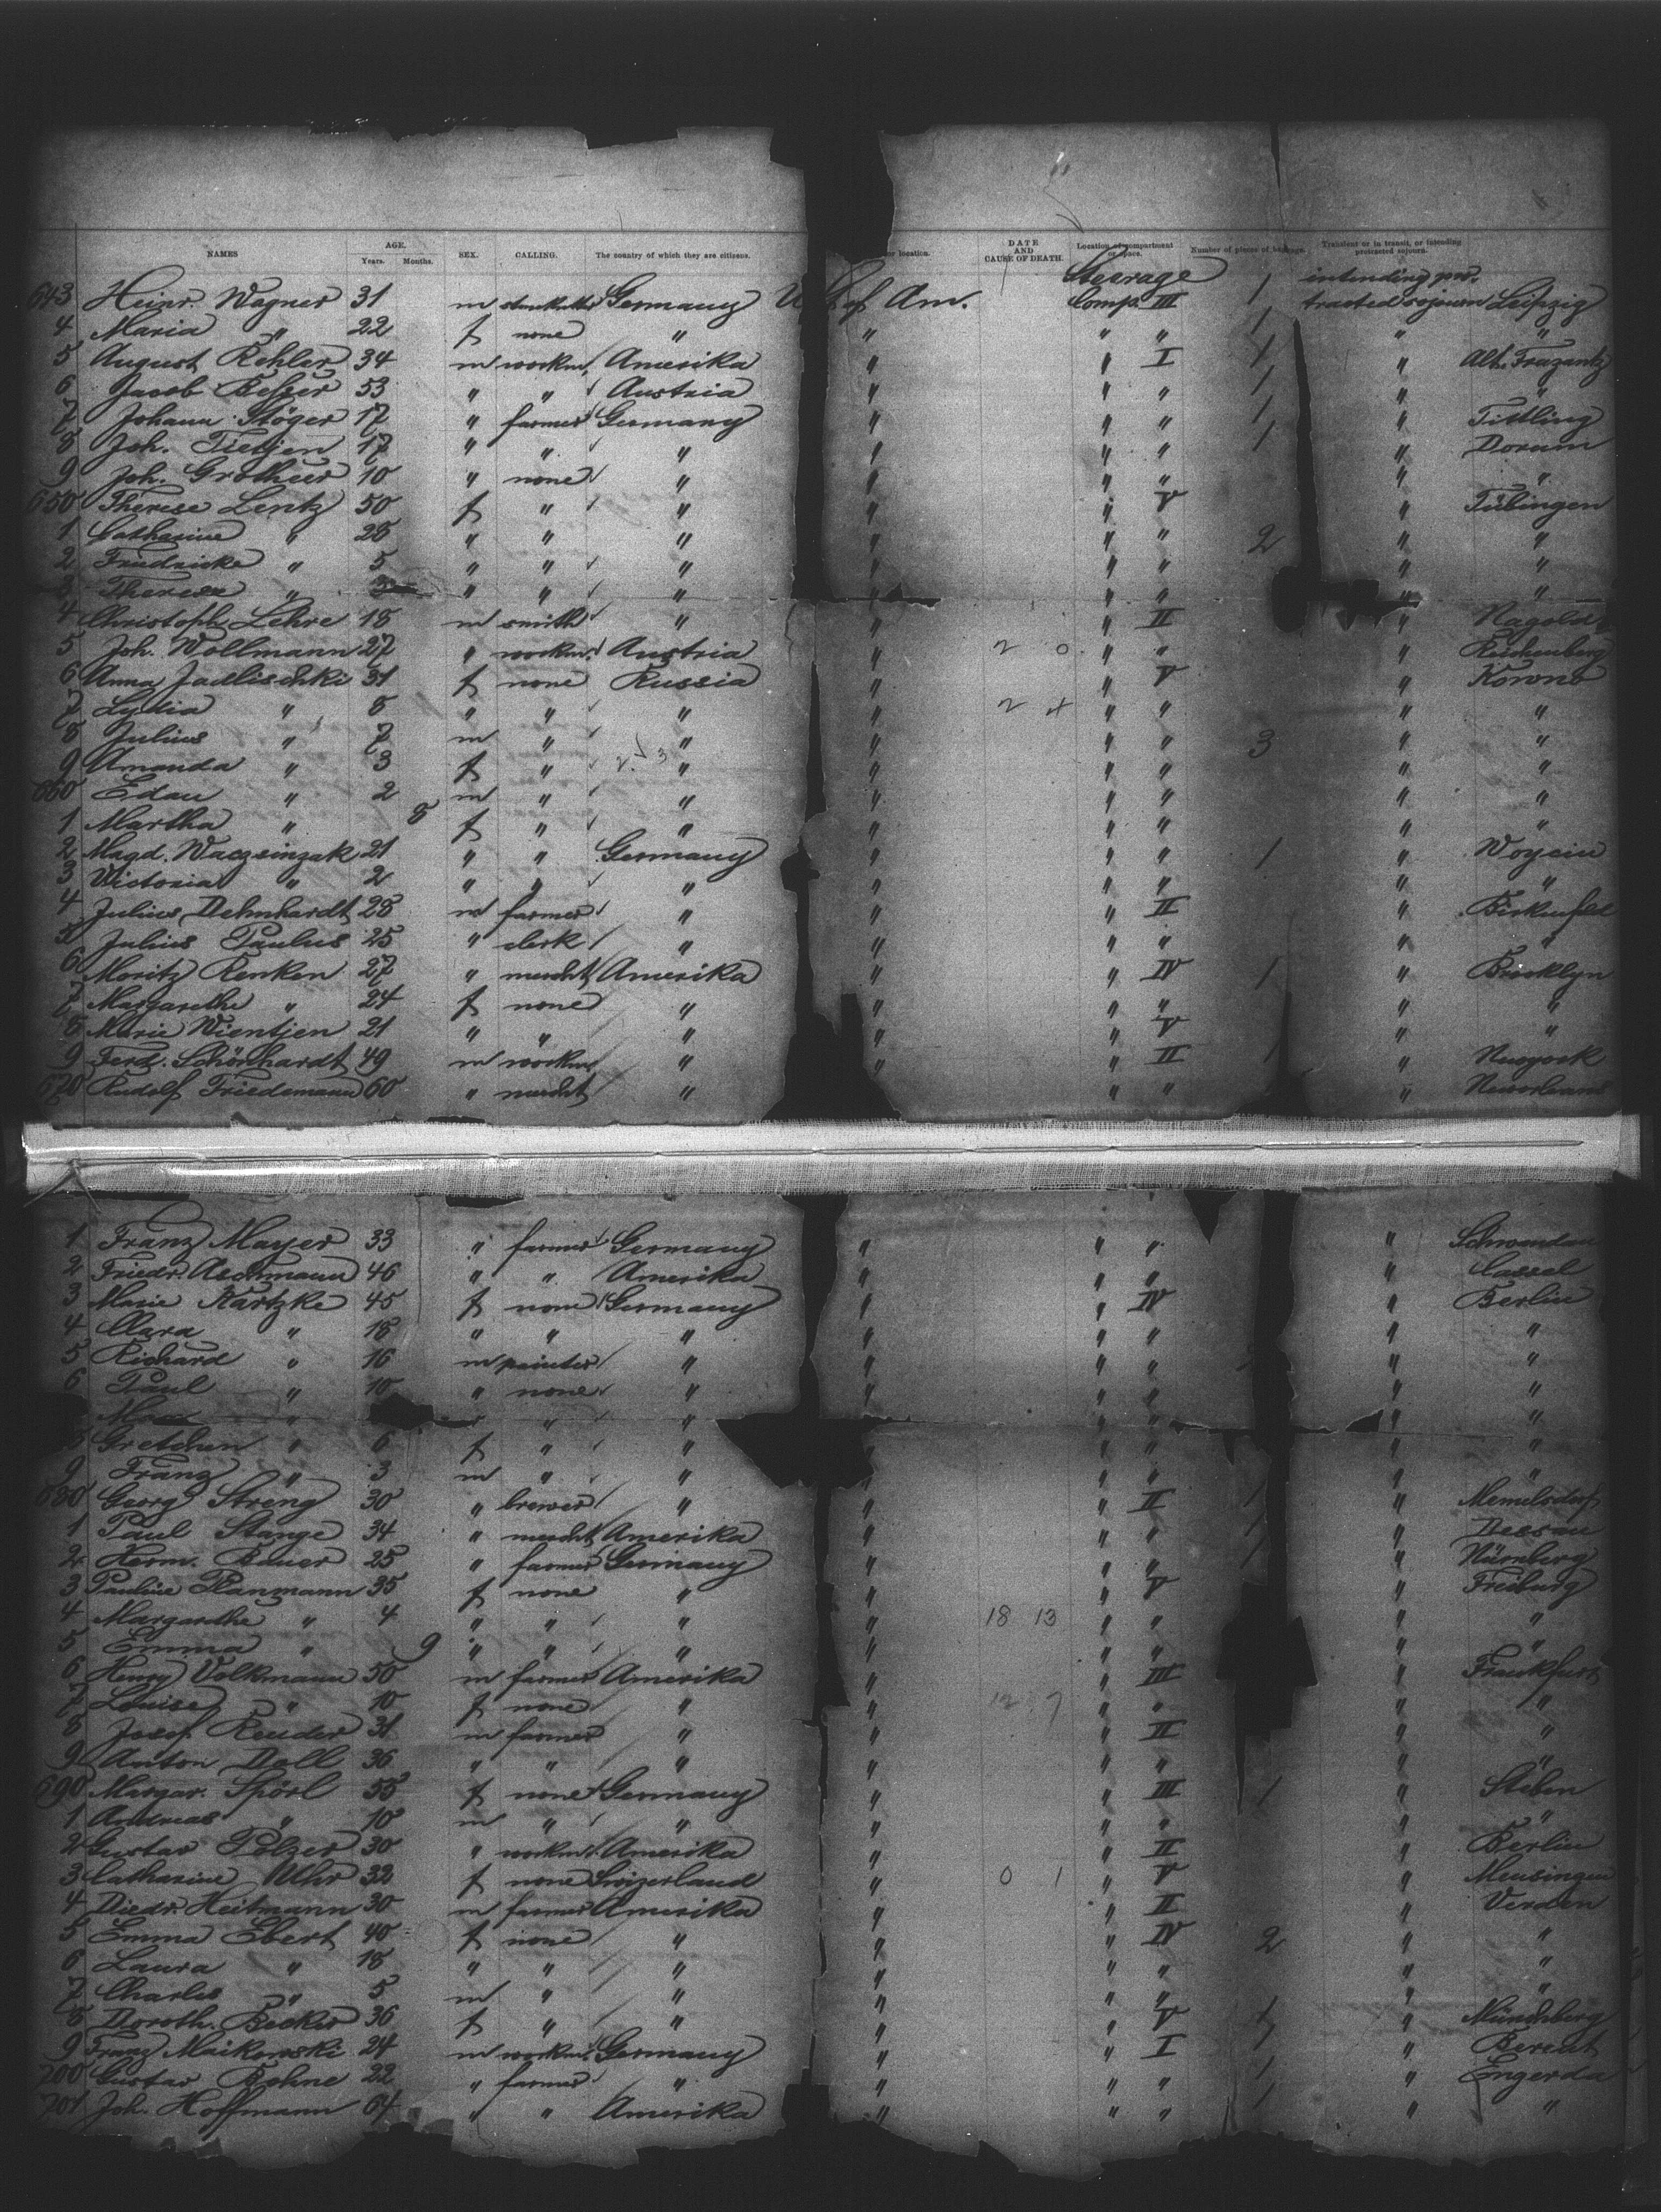 NAMES AGE. Years. Months. SEX. CALLING. The country of which they are citizens. or location. DATE AND CAUSE OF DEATH. Location of compartment or space. Number of pieces of baggage. Transient or in transit, or intending protracted sojourn.
Steerage intending pro-
643 Heinr. Wagner 31 m Germany U. S. of Am. Comp. III 1 tracted sojourn Leipzig
4 Maria " 22 f none " " " " 1 " "
5 August Kehler 34 m workm. Amerika " " I 1 "
6 Jacob 53 " " Austria " " " 1 " "
7 Johann Stöger 17 " farmer Germany " " " 1 " Tittling
8 Joh. Tietjen 17 " " " " " " 1 " Dorum
9 Joh. Grotheer 10 " none " " " " " "
650 Therese Lentz 50 f " " " " V " Tübingen
1 Catharine " 28 " " " " " " 2 " "
2 Friedricke " 5 " " " " " " " "
3 Therese " 3 " " " " " " " "
4 Christoph Lehre 18 m smith " " " II " Nagold
5 Joh. Wollmann 27 " workm. Austria " 2 0 " " " Reichenberg
6 Anna Jadlischki 31 f none Russia " " V " Kowno
7 Lydia " 8 " " " " 2 4 " " " "
8 Julius " 7 m " " " " " 3 " "
9 Amanda " 3 f " " " " " " "
660 Edau " 2 m " " " " " " "
1 Martha " 8 f " " " " " " "
2 Magd. Waczsinzak 21 " " Germany " " " 1 " Woycin
3 Victoria " 2 " " " " " " " "
4 Julius Dehnhardt 28 m farmer " " " II " Birkenfeld
5 Julius Paulus 25 " clerk " " " " " "
6 Moritz Renken 27 " mercht Amerika " " IV 1 " Brooklyn
7 Margarethe " 24 f none " " " " " "
8 Marie Wientjen 21 " " " " " V " "
9 Ferd. Schönhardt 49 m workm " " " II 1 " Newyork
670 Rudolf Friedemann 60 " mercht " " " " " Neworleans
1 Franz Mayer 33 " farmer Germany " " " " Schwandau
2 Friedr. Aschmann 46 " " Amerika " " " " Cassel
3 Marie Kartzke 45 f none Germany " " IV " Berlin
4 Clara " 18 " " " " " " " "
5 Richard " 16 m painter " " " " " "
6 Paul " 10 " none " " " " " "
Max " " " " " " " "
8 Gretchen " 6 f " " " " " " "
9 Franz " 3 m " " " " " " "
680 Georg Streng 30 " brewer " " " II 1 " Memelsdorf
1 Paul Stange 34 " mercht Amerika " " " 1 " Dessau
2 Herm. Bauer 25 " farmer Germany " " " 1 " Nürnberg
3 Pauline Planzmann 35 f none " " " V " Freiburg
4 Margarethe " 4 " " " " 18 13 " " " "
5 Emma " 9 " " " " " " " "
6 Henry Volkmann 50 m farmer Amerika " " III " Frankfurt
7 Louise " 10 f none " " 12 7 " " " "
8 Josef Reuder 31 m farmer " " " II " "
9 Anton Doll 36 " " " " " " " "
690 Margar. Spörl 55 f none Germany " " III 1 " Steben
1 Andreas " 10 m " " " " " " "
2 Gustav Polzer 30 " workm. Amerika " " II " Berlin
3 Catharine Uhr 32 f none Swizerland " 0 1 " V " Mensingen
4 Diedr. Heitmann 30 m farmer Amerika " " II " Verden
5 Emma Ebert 40 f none " " " IV 2 " "
6 Laura " 18 " " " " " " " "
7 Charles " 5 m " " " " " " "
8 Doroth. Becker 36 f " " " " V 1 " Münchberg
9 Franz Maikowski 24 m workm. Germany " " I 1 " Berent
700 Gustav Bohne 22 " farmer " " " " 1 " Engerda
701 Joh. Hoffmann 64 " " Amerika " " " 1 " "